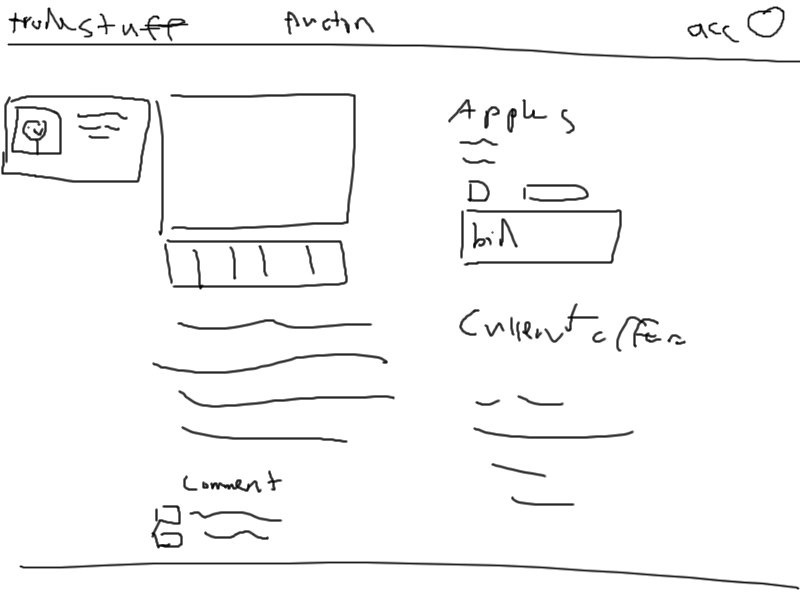 tradestuff Auction acc
Apples
bid
Current offers
Comment